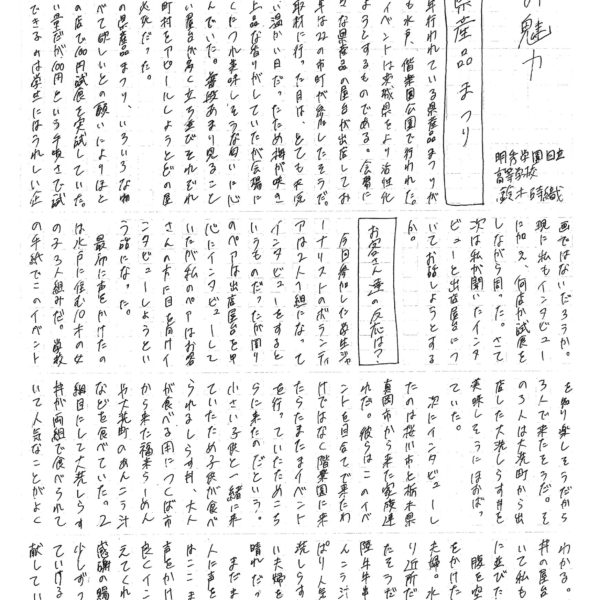 の魅力
県産品まつり
明秀学園日立
高等学校
鈴木詩織
年行われている県産品まつりが
も水戸、偕楽園公園で行われた。
イベントは茨城県をより活性化
ようとするものである。会場に
々な県産品の屋台が出店してお
年は22の市町が参加したそうだ。
取材に行った日は、とても天候
い温かい日だったため梅が咲き
上品な香りがしていたが会場に
くにつれ美味しそうな匂いに心
んでいた。普段あまり見ること
い屋台が多く立ち並びそれぞれ
町村をアピールしようとどの屋
必死だった。
の県産品まつり、いろいろな物
べて欲しいとの願いによりほと
の店で100円試食を実試していた。
い量だが100円という手頃さで試
できるのは学生にはうれしい企
画ではないだろうか。
現に私もインタビュー
に加え、何店か試食を
しながら回った。さて
次は私が聞いたインタ
ビューと出店屋台につ
いてお話しようとする
か。
お客さん達の反応は？
今回参加した学生ジャ
ーナリストのボランティ
アは2人1組になって
インタビューをすると
いうものだったが周り
のペアは出店屋台を中
心にインタビューして
いたが私のペアはお客
さんの方に目を向けイ
ンタビューしようとい
う話になった。
最初に声をかけたの
は水戸に住む10才の女
の子3人組みだ。学校
の手紙でこのイベント
を知り楽しそうだから
3人で来たそうだ。そ
の3人は大洗町から出
店した大洗しらす丼を
美味しそうにほおばっ
ていた。
次にインタビューし
たのは桜川市と栃木県
真岡市から来た家族連
れだ。彼らはこのイベ
ントを目当てで来たわ
けではなく偕楽園に来
たらたまたまイベント
を行っていたためこち
らに来たのだという。
小さい子供と一緒に来
ていたため子供が食べ
られますしらす丼、大人
が食べる用につくば市
から来た福来らーめん
や大洗町のあんこう汁
などを食べていた。2
組目にして大洗しらす
丼が両組で食べられて
いて人気なことがよく
わかる。
丼の屋台
いて私も
に並びた
腹を空
をかけた
夫婦。水
り近所だ
たそうだ
陸牛串
んこう汁
ぱり人気
洗しらす
い夫婦を
晴れだっ
まだま
人に声を
声をかけ
良くイン
えてくれ
感謝の鍋
少しずつ
ていける
献してい